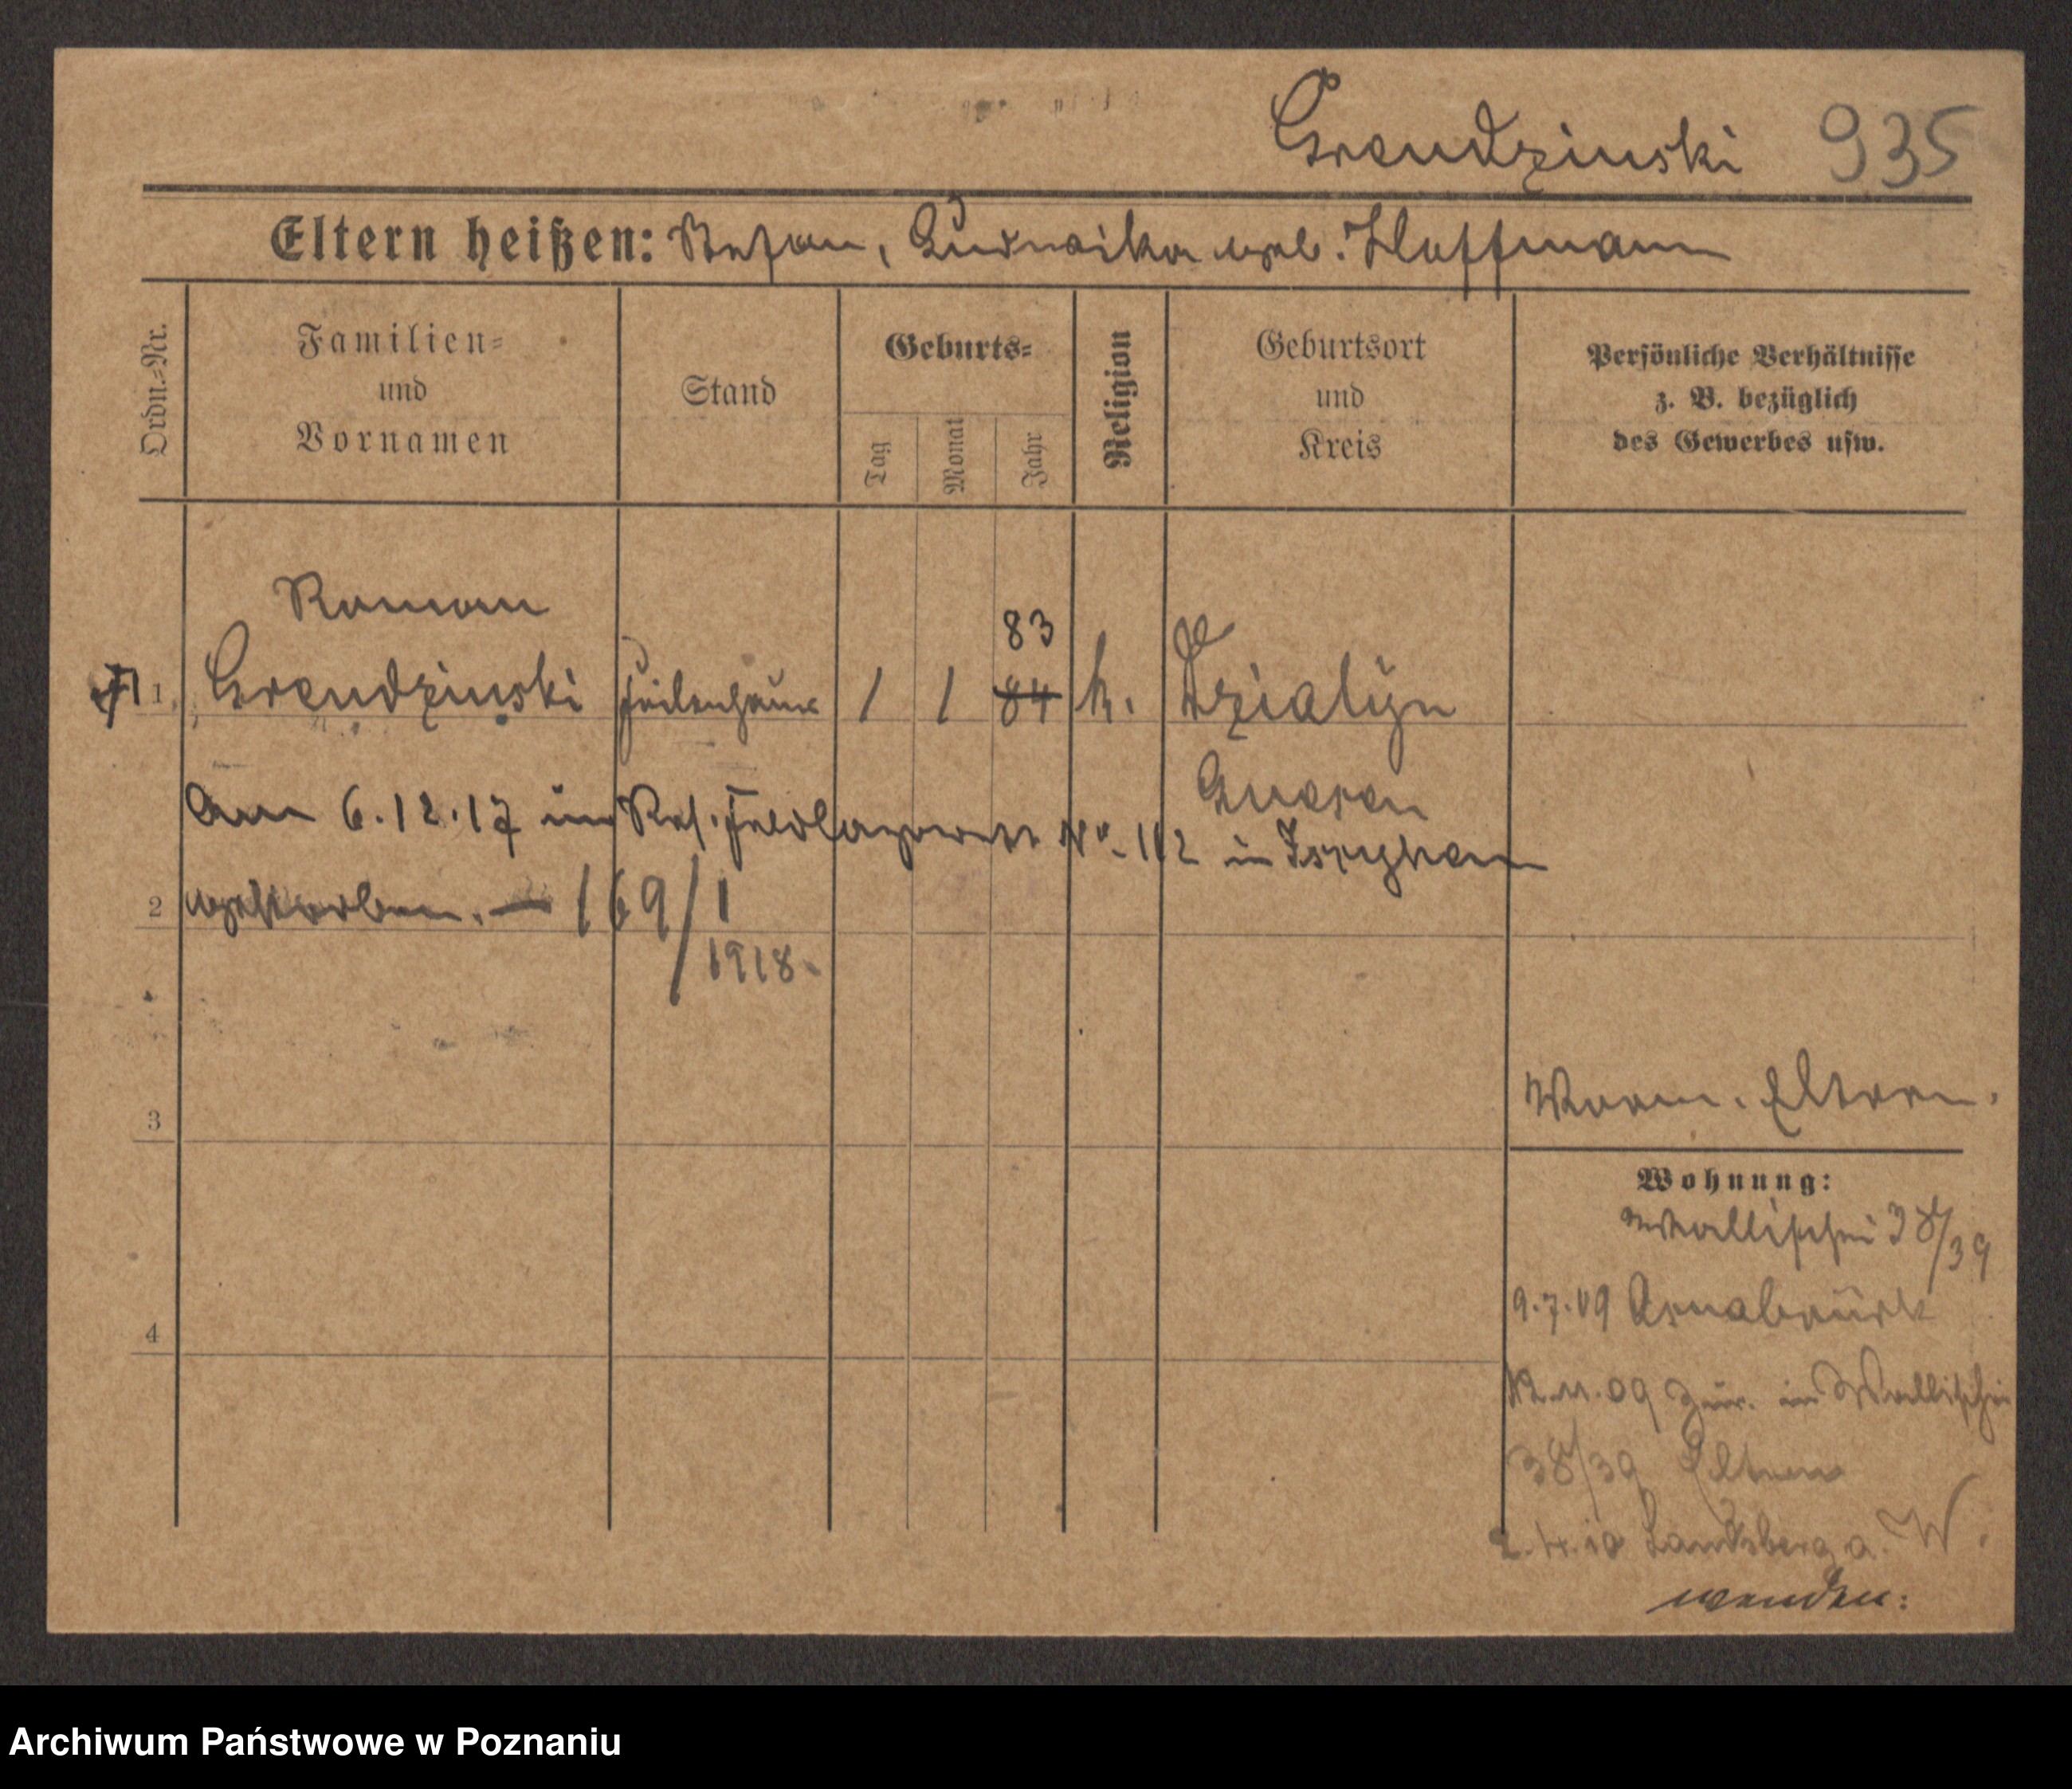 Grendzinski 935
Eltern heißen: Stefan, Ludwika geb. Hoffmann
Ordn.=Nr.
Familien=
und
Vornamen
Stand
Geburts=
Tag
Monat
Jahr
Religion
Geburtsort
und
Kreis
Persönliche Verhältnisse
z. B. bezüglich
des Gewerbes usw.
Roman
83
1 Grendzinski Feilenhauer 1 1 84 k. Dzialyn
Gnesen
Am 6.12.17 im Res. Feldlazarett No. 112 in Iseghem
2 gestorben. — 169/1
1918.
3
Eltern.
Wohnung:
Wallischei 38/39
9.7.09 Osnabrück
4
12.11.09 zur. in Wallischei
38/39 Eltern
2.4.10 Landsberg a. W.
wenden:
Archiwum Państwowe w Poznaniu